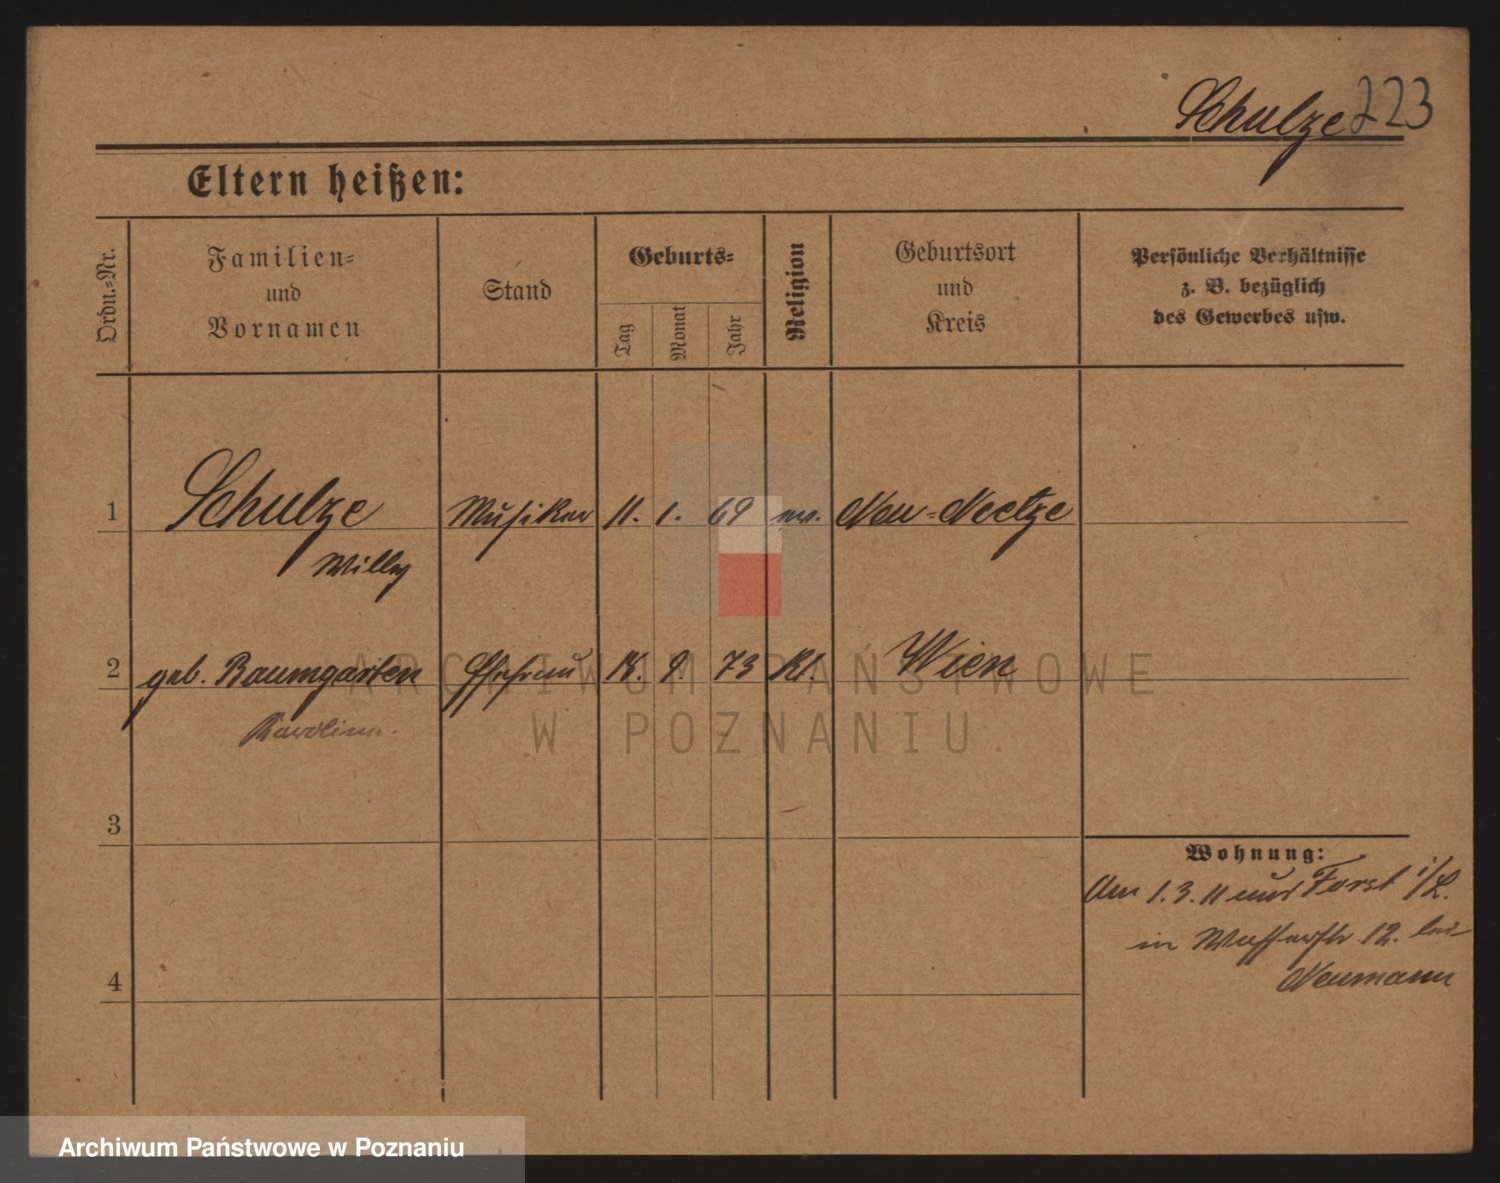 Schulze 223
Eltern heißen:
Ordn.-Nr.
Familien-
und
Vornamen
Stand
Geburts-
Tag
Monat
Jahr
Religion
Geburtsort
und
Kreis
Persönliche Verhältnisse
z. B. bezüglich
des Gewerbes usw.
1 Schulze Musiker 11. 1. 69 ev. Neu-Neetze
Willy
2 geb. Baumgarten Ehefrau 9. 73 kt. Wien
Karoline
3
4
Wohnung:
Am 1.3.11 und Forst i/L.
in Wasserstr. 12. bei
Neumann
ARCHIWUM PAŃSTWOWE
W POZNANIU
Archiwum Państwowe w Poznaniu